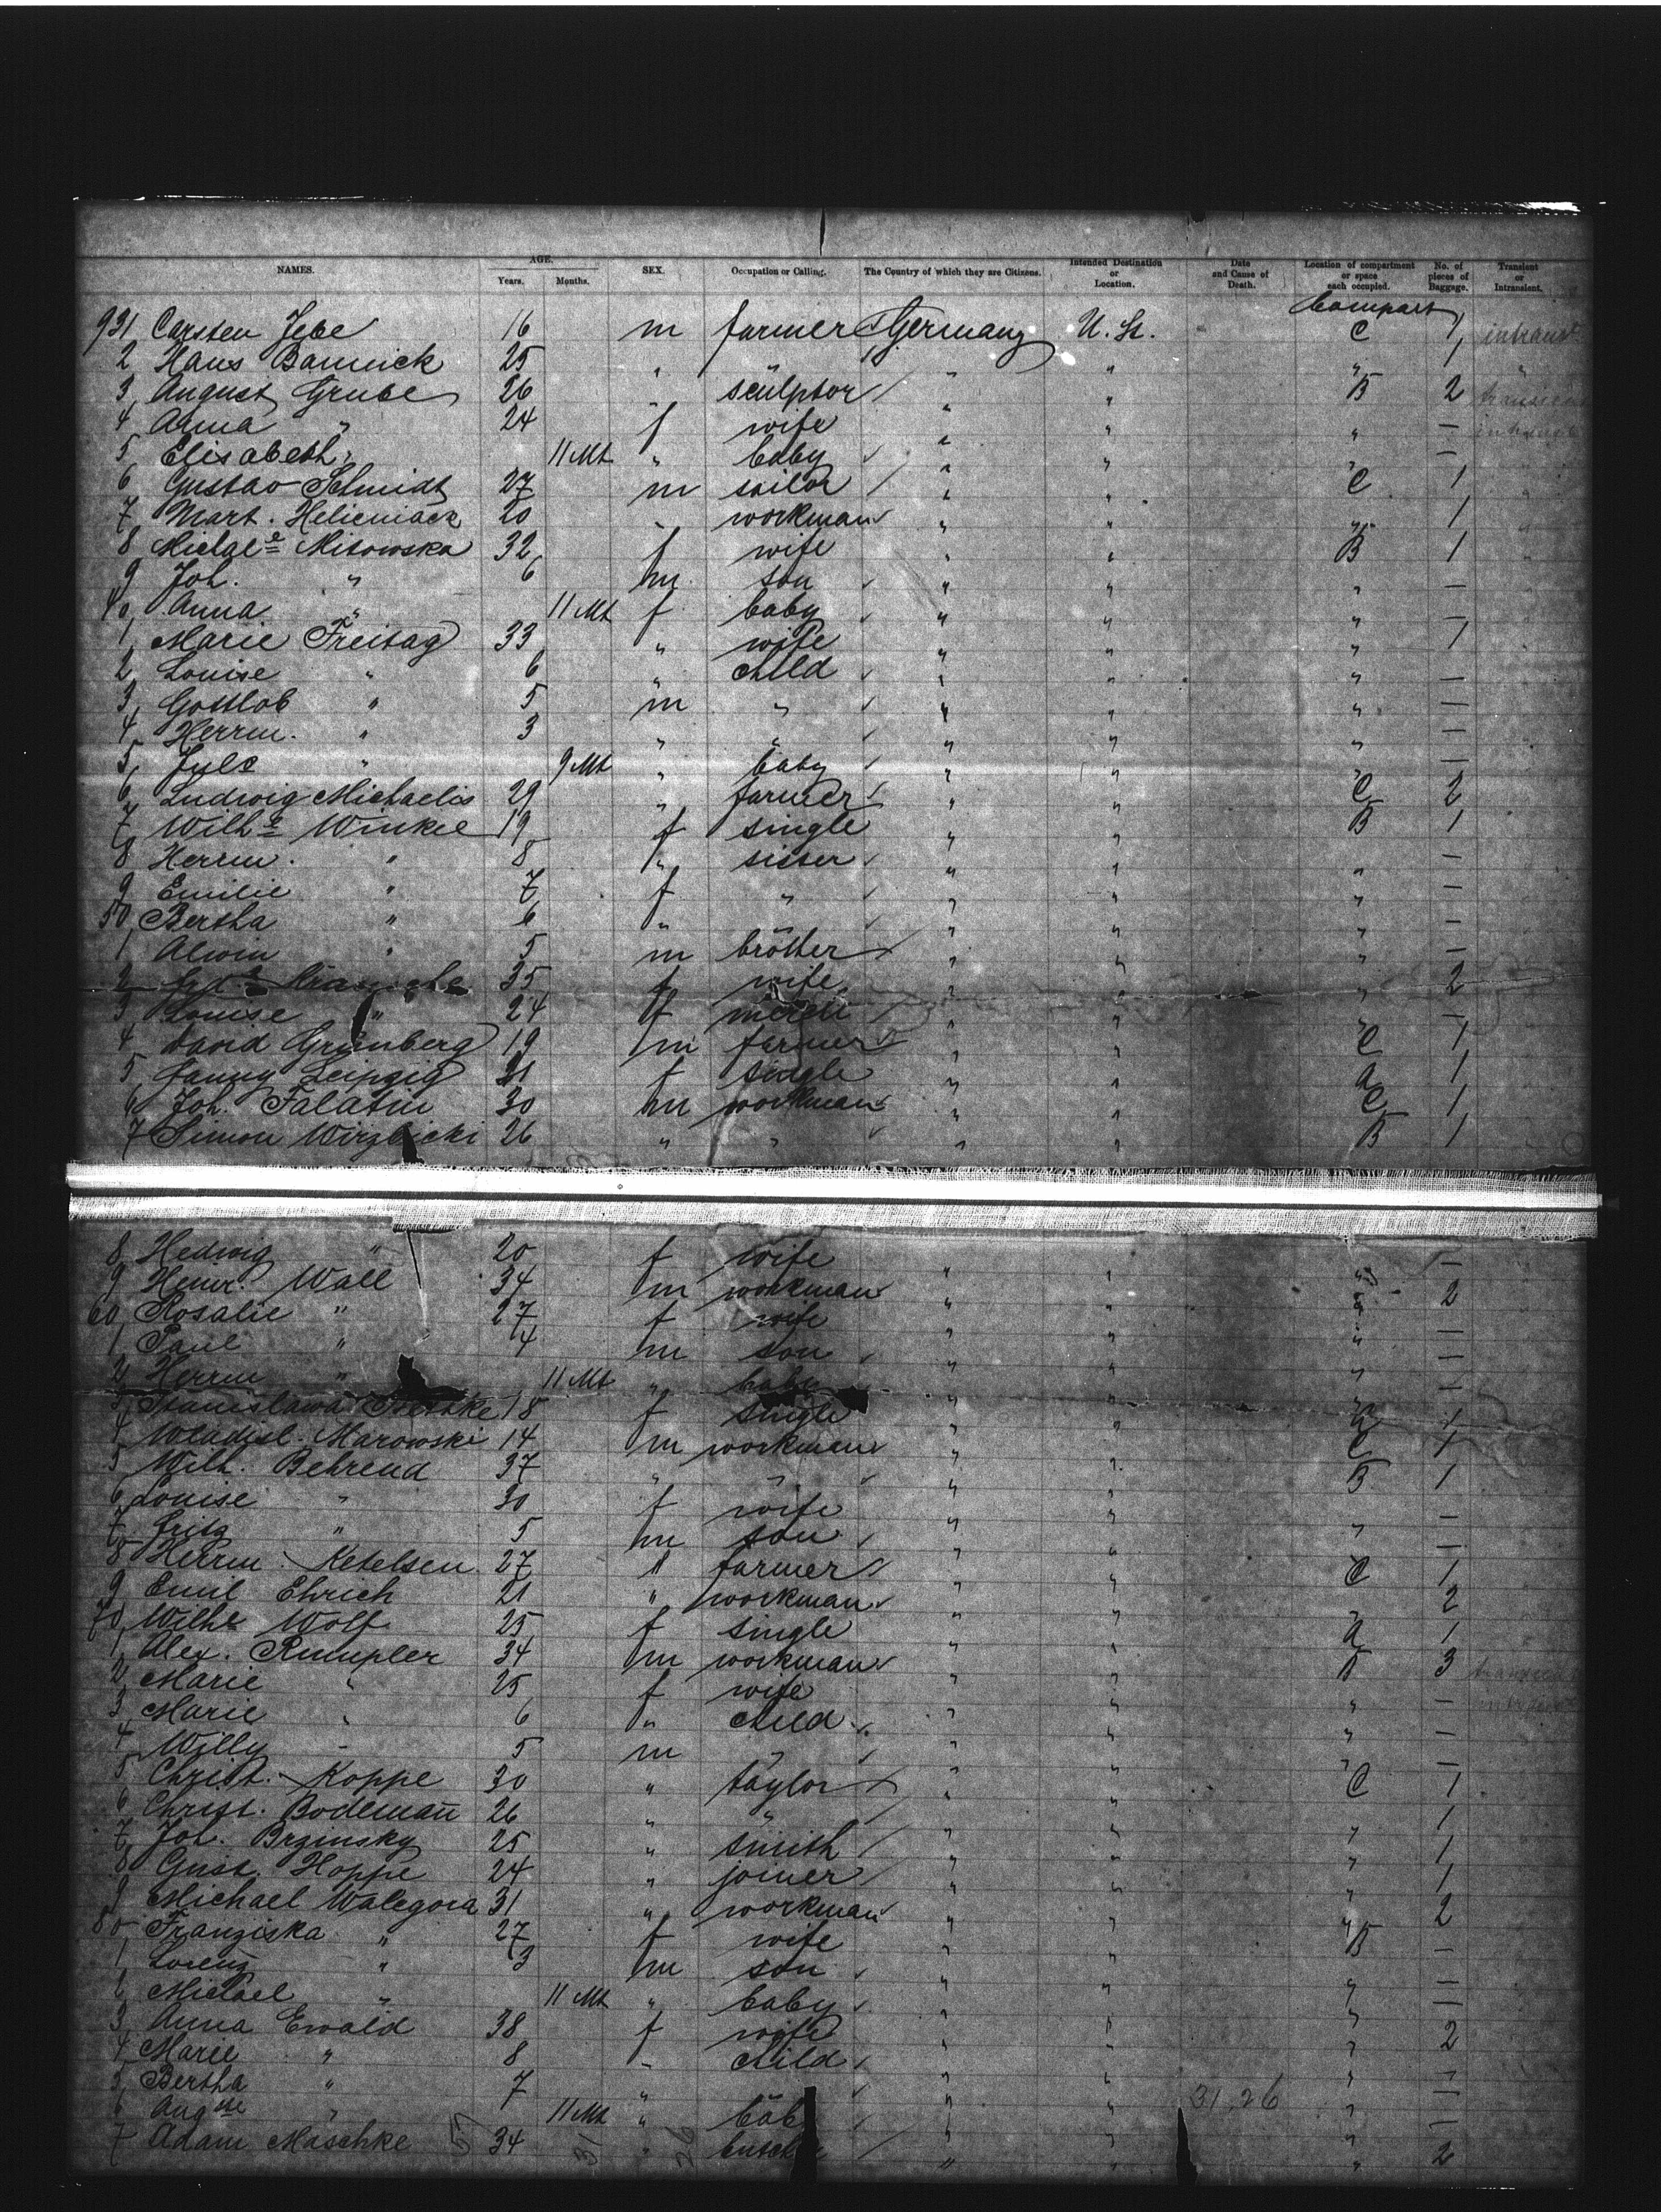 NAMES. AGE. Years. Months. SEX. Occupation or Calling. The Country of which they are Citizens. Intended Destination or Location. Date and Cause of Death. Location of compartment or space each occupied. No. of pieces of Baggage. Transient or Intransient.
Compart
931 Carsten Jebe 16 m farmer Germany U. St. C 1 intranst
2 Hans Bannick 25 " " " " " 1 "
3 August Grube 26 " sculptor " " B 2
4 Anna " 24 f wife " " " —
5 Elisabeth " 11 Mt " baby " " " —
6 Gustav Schmidt 27 m sailor " " C 1
7 Mart. Helieniack 20 " workman " " " 1
8 Michale Mitowska 32 f wife " " B 1
9 Joh. " 6 m son " " " —
40 Anna " 11 Mt f baby " " " —
1 Marie Freitag 33 " wife " " " 1
2 Louise " 6 " child " " " —
3 Gottlob " 5 m " " " " —
4 Herrm. " 3 " " " " " —
5 Juls " 9 Mt " baby " " " —
6 Ludwig Michaelis 29 " farmer " " C 2
7 Wilhe Winkel 19 f single " " B 1
8 Herrm. " 8 " sisser " " " —
9 Emilie " 7 f " " " " —
50 Bertha " 6 " " " " " —
1 Alwin " 5 m brother " " " —
2 35 f wife " " " 2
3 Louise " 24 f " " " —
4 David Grünberg 19 m farmer " " C 1
5 Fanny Leipzig 21 f single " " a 1
6 Joh. Falatin 30 m workman " " C 1
7 Simon Wirzbicki 26 " " " " B 1
8 Hedwig " 20 f wife " " " —
9 Heinr. Wall 34 m workman " " " 2
60 Rosalie " 27 f wife " " " —
1 Paul " 4 m son " " " —
2 Herrm " 11 Mt " baby " " " —
3 Stanislawa 18 f single " " a 1
4 Wladisl. Marowski 14 m workman " " C 1
5 Wilh. Behrend 37 " " " " B 1
6 Louise " 30 f wife " " " —
7 Fritz " 5 m son " " " —
8 Herrm. Ketelsen 27 " farmer " " C 1
9 Emil Ehrich 21 " workman " " " 2
70 Wilhe Wolf 25 f single " " a 1
1 Alex. Rumpler 34 m workman " " B 3
2 Marie " 25 f wife " " " —
3 Marie " 6 " child " " " —
4 Willy " 5 m " " " " —
5 Christ. Koppe 30 " taylor " " C 1
6 Christ. Bodemañ 26 " " " " " 1
7 Joh. Brzinsky 25 " smith " " " 1
8 Gust. Hoppe 24 " joiner " " " 1
9 Michael Walegora 31 " workman " " " 2
80 Franziska " 27 f wife " " B —
1 Lorenz " 3 m son " " " —
2 Michael " 11 Mt " baby " " " —
3 Anna Ewald 38 f wife " " " 2
4 Marie " 8 " child " " " —
5 Bertha " 7 " " " " " —
31.26
6 Augste " 11 Mt " baby " " " —
7 Adam Maschke 34 " " " " 2
57 31 26